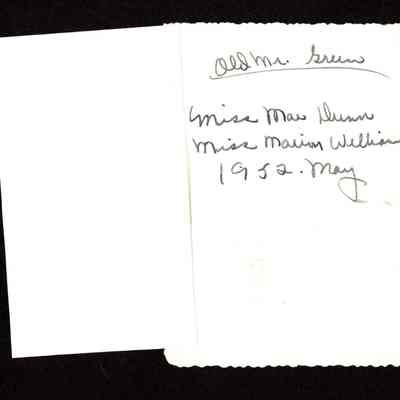 Old Mr. Green
Miss Mae Dunn
Miss Marion William
1952. May